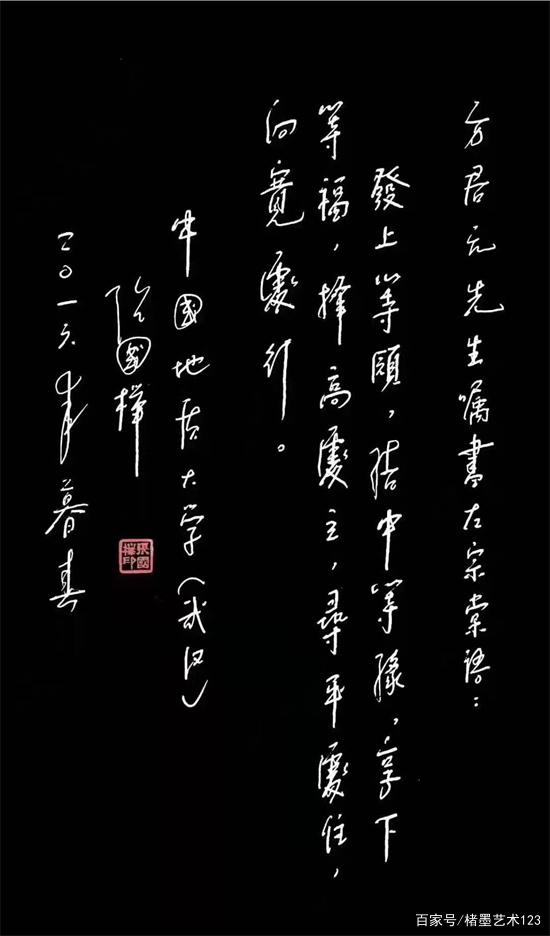 方君元先生嘱書左宗棠語：
發上等願，結中等緣，享下
等福，擇高處立，尋平處住，
向寬處行。
中國地质大学（武汉）
張國樺
張國樺印
二〇一六年暮春
百家号/楮墨艺术123